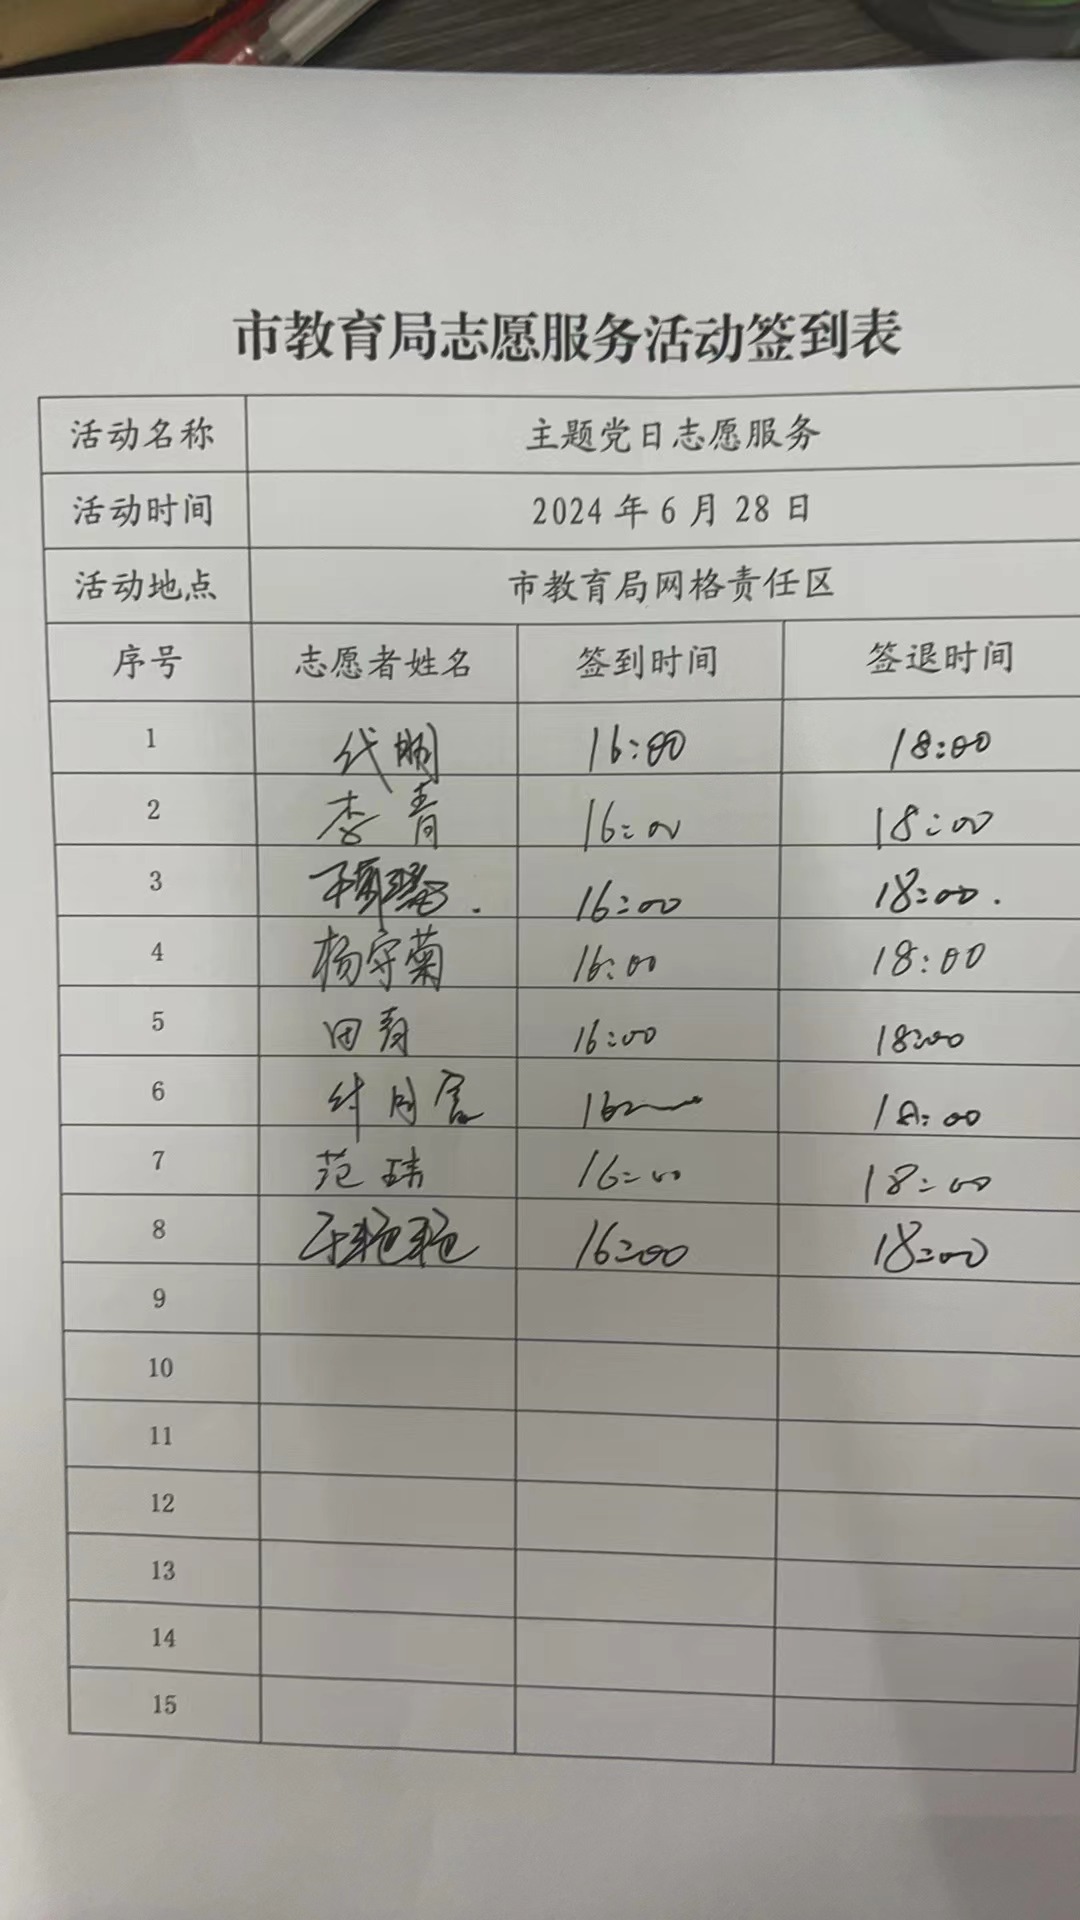 市教育局志愿服务活动签到表
活动名称 主题党日志愿服务
活动时间 2024年6月28日
活动地点 市教育局网格责任区
序号 志愿者姓名 签到时间 签退时间
1 代 16:00 18:00
2 李青 16:00 18:00
3 16:00 18:00.
4 杨守菊 16:00 18:00
5 田青 16:00 18:00
6 16: 18:00
7 范玮 16:00 18:00
8 16:00 18:00
9
10
11
12
13
14
15